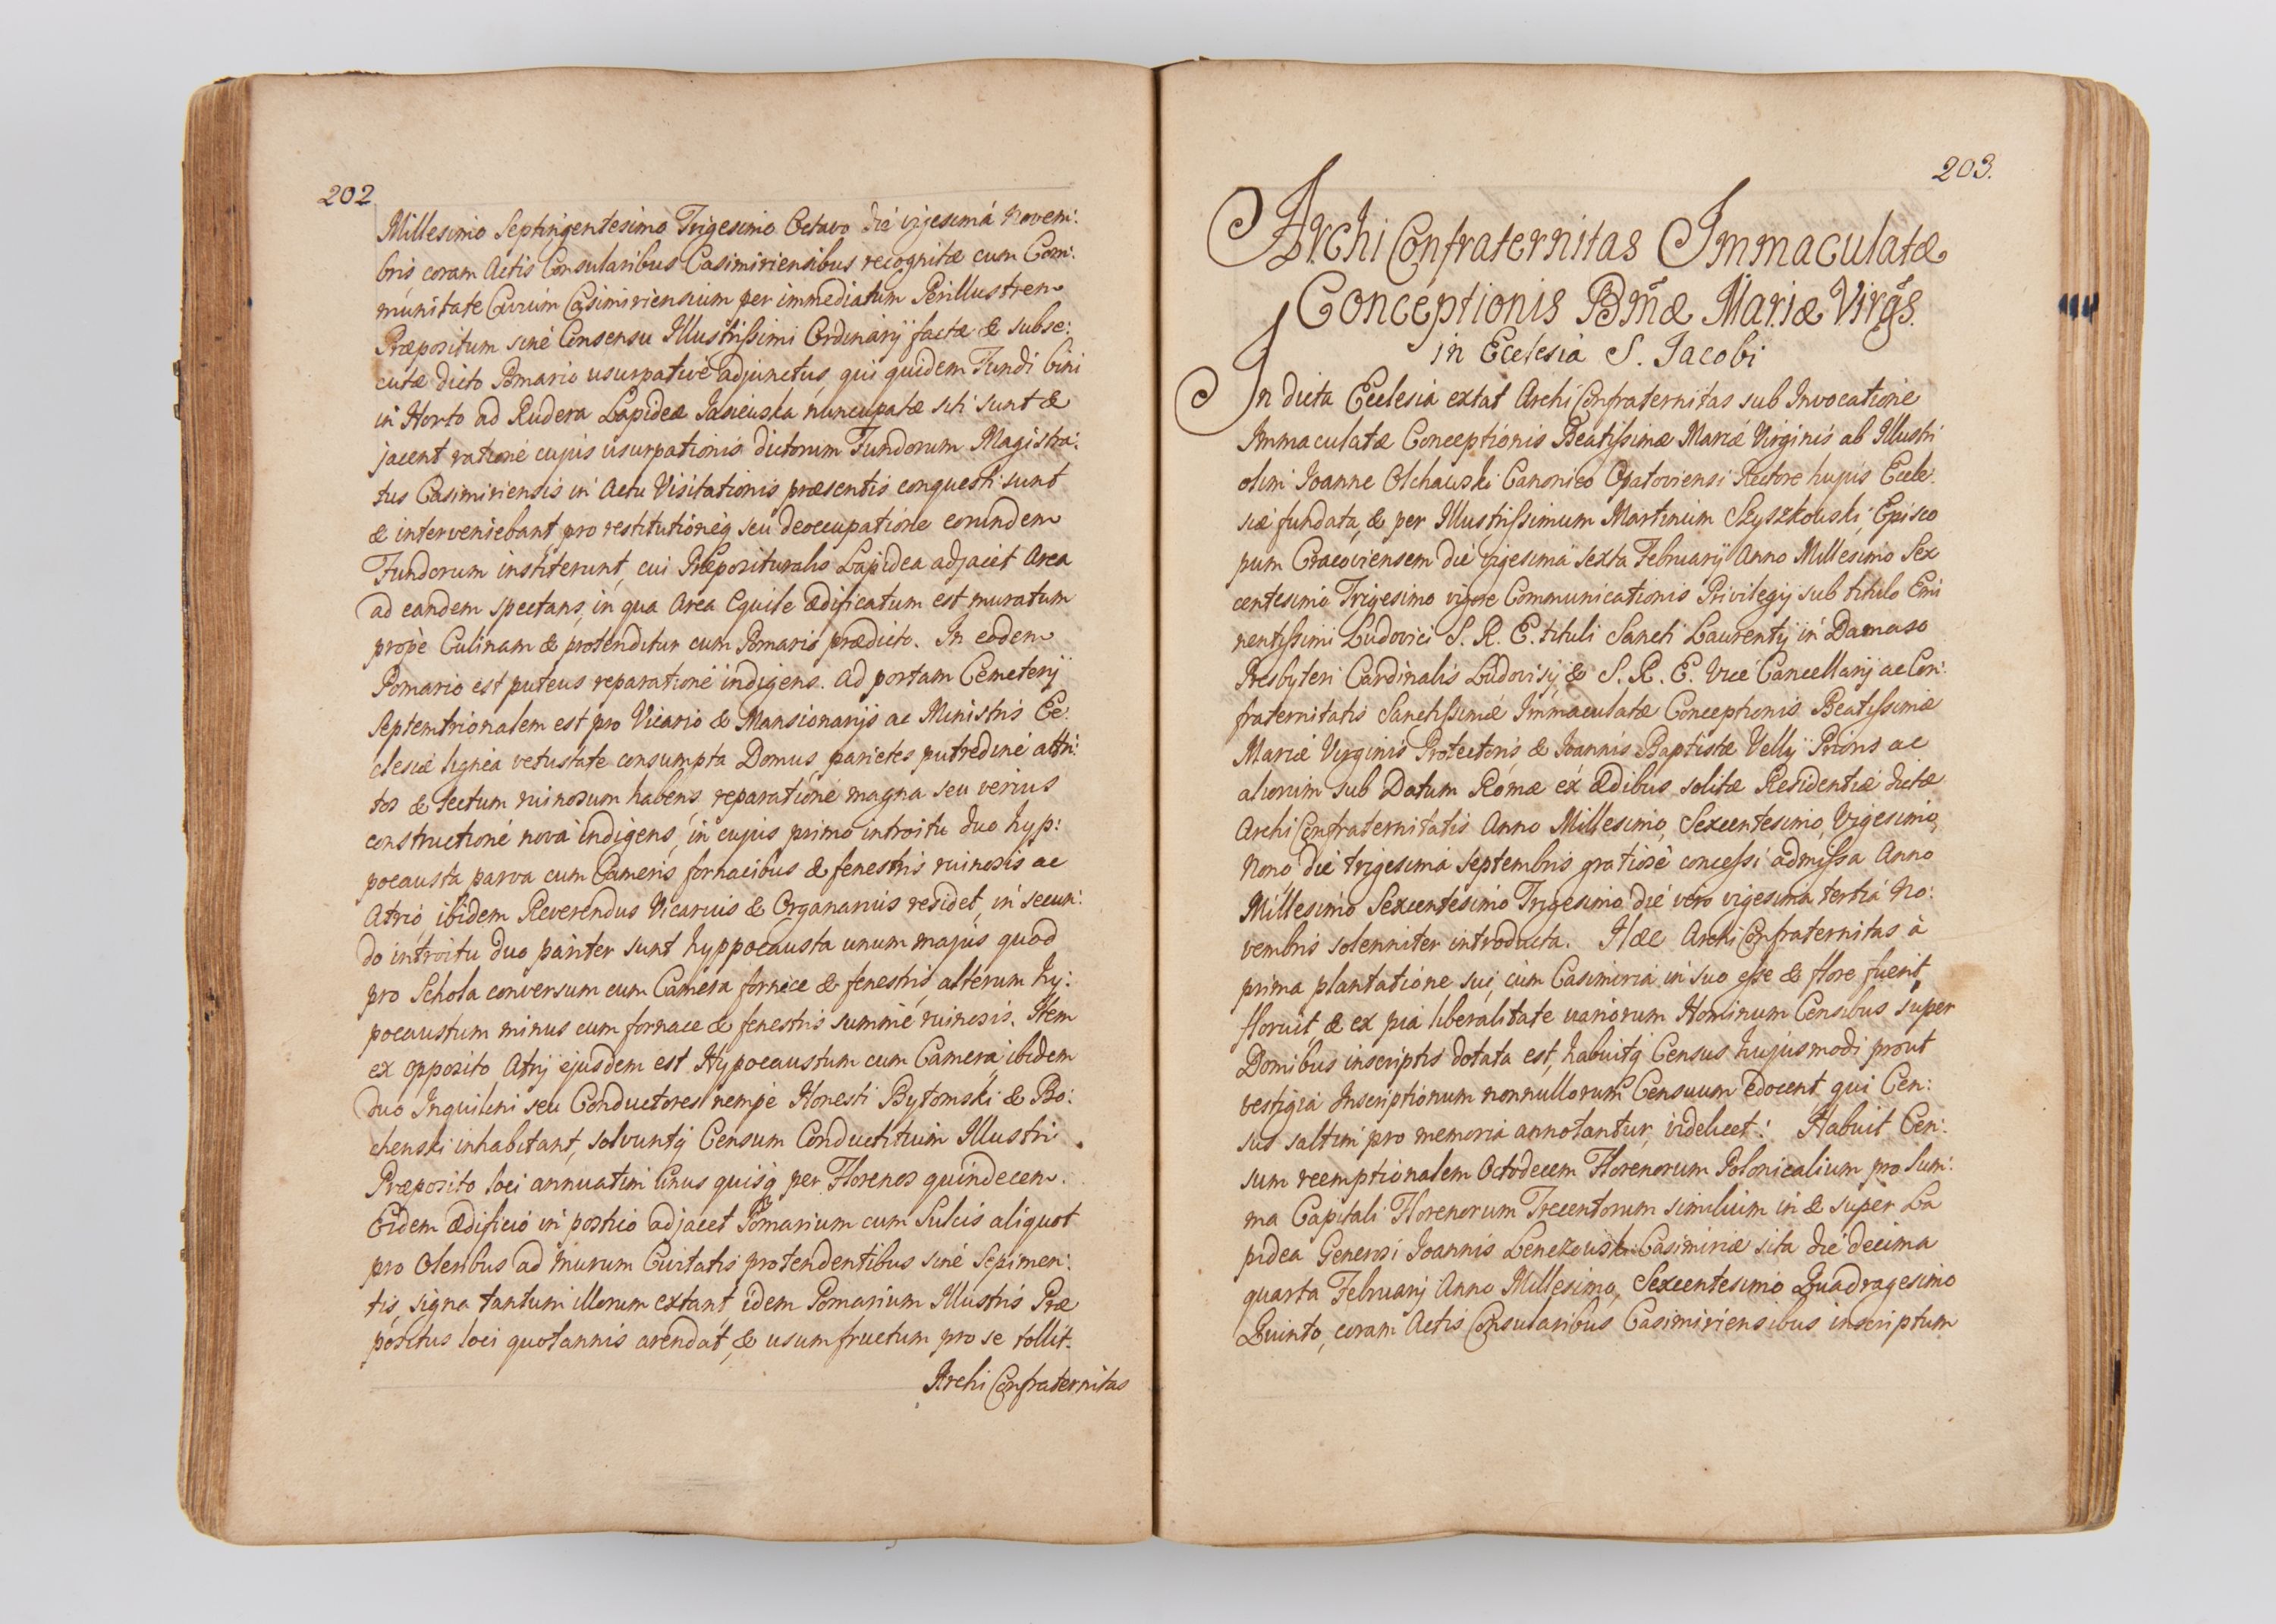 202
Millesimo Septingentesimo Trigesimo Octavo die vigesimá Novem:
bris coram Actis Consularibus Casimiriensibus recognitæ cum Com:
munitate Civium Casimiriensium per immediatum Perillustrem
Præpositum sine Consensu Illustrissimi Ordinarij factæ & subse:
cutæ dicto Pomario usurpativè adjunctus, qui quidem Fundi bini
in Horto ad Rudera Lapideæ nuncupatæ siti sunt &
jacent ratione cujus usurpationis dictorum Fundorum Magistra:
tus Casimiriensis in Actu Visitationis præsentis conquesti sunt
& interveniebant, pro restitutioneq seu deoccupatione eorundem
Fundorum institerunt, cui Præposituralis Lapidea adjacet Area
ad eandem spectans, in qua Area Equile ædificatum est muratum
propè Culinam & protenditur cum Pomario prædicto. In eodem
Pomario est puteus reparatione indigens. Ad portam Cemeterij
Septemtrionalem est pro Vicario & Mansionarijs ac Ministris Ec:
clesiæ lignea vetustate consumpta Domus parietes putredine attri:
tos & tectum ruinosum habens, reparatione magna seu verius
constructione nova indigens, in cujus primo introitu duo hyp:
pocausta parva cum Cameris fornacibus & fenestris ruinosis ac
Atrio, ibidem Reverendus Vicarius & Organarius residet, in secun:
do introitu duo pariter sunt hyppocausta unum majus quod
pro Schola conversum cum Camera fornice & fenestris, alterum hy:
pocaustum minus cum fornace & fenestris summè ruinosis. Item
ex opposito Atrij ejusdem est Hypocaustum cum Camera, ibidem
duo Inquilini seu Conductores nempè Honesti Bytomski & Bo:
chenski inhabitant, solvuntq Censum Conductitium Illustri
Præposito loci annuatim Unus quisq per Florenos quindecem.
Eidem ædificio in postico adjacet Pomarium cum Sulcis aliquot
pro Oleribus ad murum Civitatis protendentibus sine Sepimen:
tis, signa tantum illorum extant, idem Pomarium Illustris Præ
positus loci quotannis arendat, & usumfructum pro se tollit.
Archi Confraternitas
203.
Archi Confraternitas Immaculatæ
Conceptionis Bmæ Mariæ Virgs.
in Ecclesia S. Jacobi
In dicta Ecclesia extat Archi Confraternitas sub Invocatione
Immaculatæ Conceptionis Beatissimæ Mariæ Virginis ab Illustri
olim Joanne Olchawski Canonico Opatoviensi Rectore hujus Eccle:
siæ fundata, & per Illustrissimum Martinum Szyszkowski, Episco
pum Cracoviensem die vigesima sexta Februarij Anno Millesimo Sex
centesimo Trigesimo vigore Communicationis Privilegij sub titulo Emi
nentissimi Ludovici S. R. E. tituli Sancti Laurentij in Damaso
Presbyteri Cardinalis Ludovisij & S. R. E. Vice Cancellarij ac Con:
fraternitatis Sanctissimæ Immaculatæ Conceptionis Beatissimæ
Mariæ Virginis Protectoris, & Joannis Baptistæ Vellÿ Prioris ac
aliorum sub Datum Romæ ex Ædibus solitæ Residentiæ dictæ
Archi Confraternitatis Anno Millesimo, Sexcentesimo, Vigesimo,
Nono, die trigesima septembris gratiosè concessi admissa Anno
Millesimo Sexcentesimo Trigesimo die vero vigesima tertia No:
vembris solenniter introducta. Hæc Archi Confraternitas à
prima plantatione sui, cum Casimiria in suo esse & flore fuerit,
floruit & ex pia liberalitate variorum Hominum Censibus super
Domibus inscriptis dotata est, habuitq Census hujusmodi prout
vestigia Inscriptionum nonnullorum Censuum edocent, qui Cen:
sus saltim pro memoria annotantur, videlicet: Habuit Cen:
sum reemptionalem Octodecem Florenorum Polonicalium pro Sum:
ma Capitali Florenorum Trecentorum similium in & super La
pidea Generosi Joannis Lenczowski Casimiriæ sita die decima
quarta Februarij Anno Millesimo, Sexcentesimo Quadragesimo
Quinto, coram Actis Consularibus Casimiriensibus inscriptum